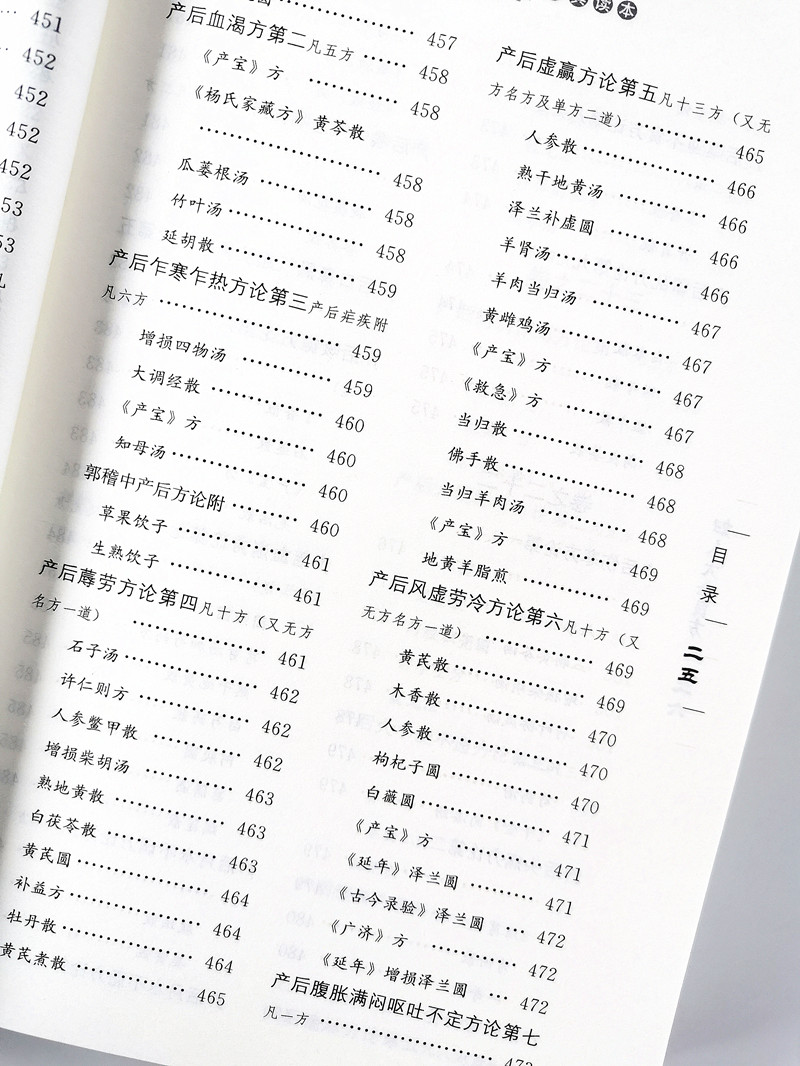 451
452
452
452
452
圆 …… 457
产后血渴方第二凡五方 …… 458
《产宝》方 …… 458
《杨氏家藏方》黄芩散
…… 458
瓜蒌根汤 …… 458
竹叶汤 …… 458
延胡散 …… 459
产后乍寒乍热方论第三产后疟疾附
凡六方 …… 459
增损四物汤 …… 459
大调经散 …… 460
《产宝》方 …… 460
知母汤 …… 460
郭稽中产后方论附 …… 460
草果饮子 …… 461
生熟饮子 …… 461
产后蓐劳方论第四凡十方（又无方
名方一道） …… 461
石子汤 …… 462
许仁则方 …… 462
人参鳖甲散 …… 462
增损柴胡汤 …… 463
熟地黄散 …… 463
白茯苓散 …… 463
黄芪圆 …… 464
补益方 …… 464
牡丹散 …… 464
黄芪煮散 …… 465
读本
产后虚羸方论第五凡十三方（又无
方名方及单方二道） …… 465
人参散 …… 466
熟干地黄汤 …… 466
泽兰补虚圆 …… 466
羊肾汤 …… 466
羊肉当归汤 …… 467
黄雌鸡汤 …… 467
《产宝》方 …… 467
《救急》方 …… 467
当归散 …… 468
佛手散 …… 468
当归羊肉汤 …… 468
《产宝》方 …… 469
地黄羊脂煎 …… 469
产后风虚劳冷方论第六凡十方（又
无方名方一道） …… 469
黄芪散 …… 469
木香散 …… 470
人参散 …… 470
枸杞子圆 …… 470
白薇圆 …… 471
《产宝》方 …… 471
《延年》泽兰圆 …… 471
《古今录验》泽兰圆 … 472
《广济》方 …… 472
《延年》增损泽兰圆 … 472
产后腹胀满闷呕吐不定方论第七
凡一方 ……
目录
二五